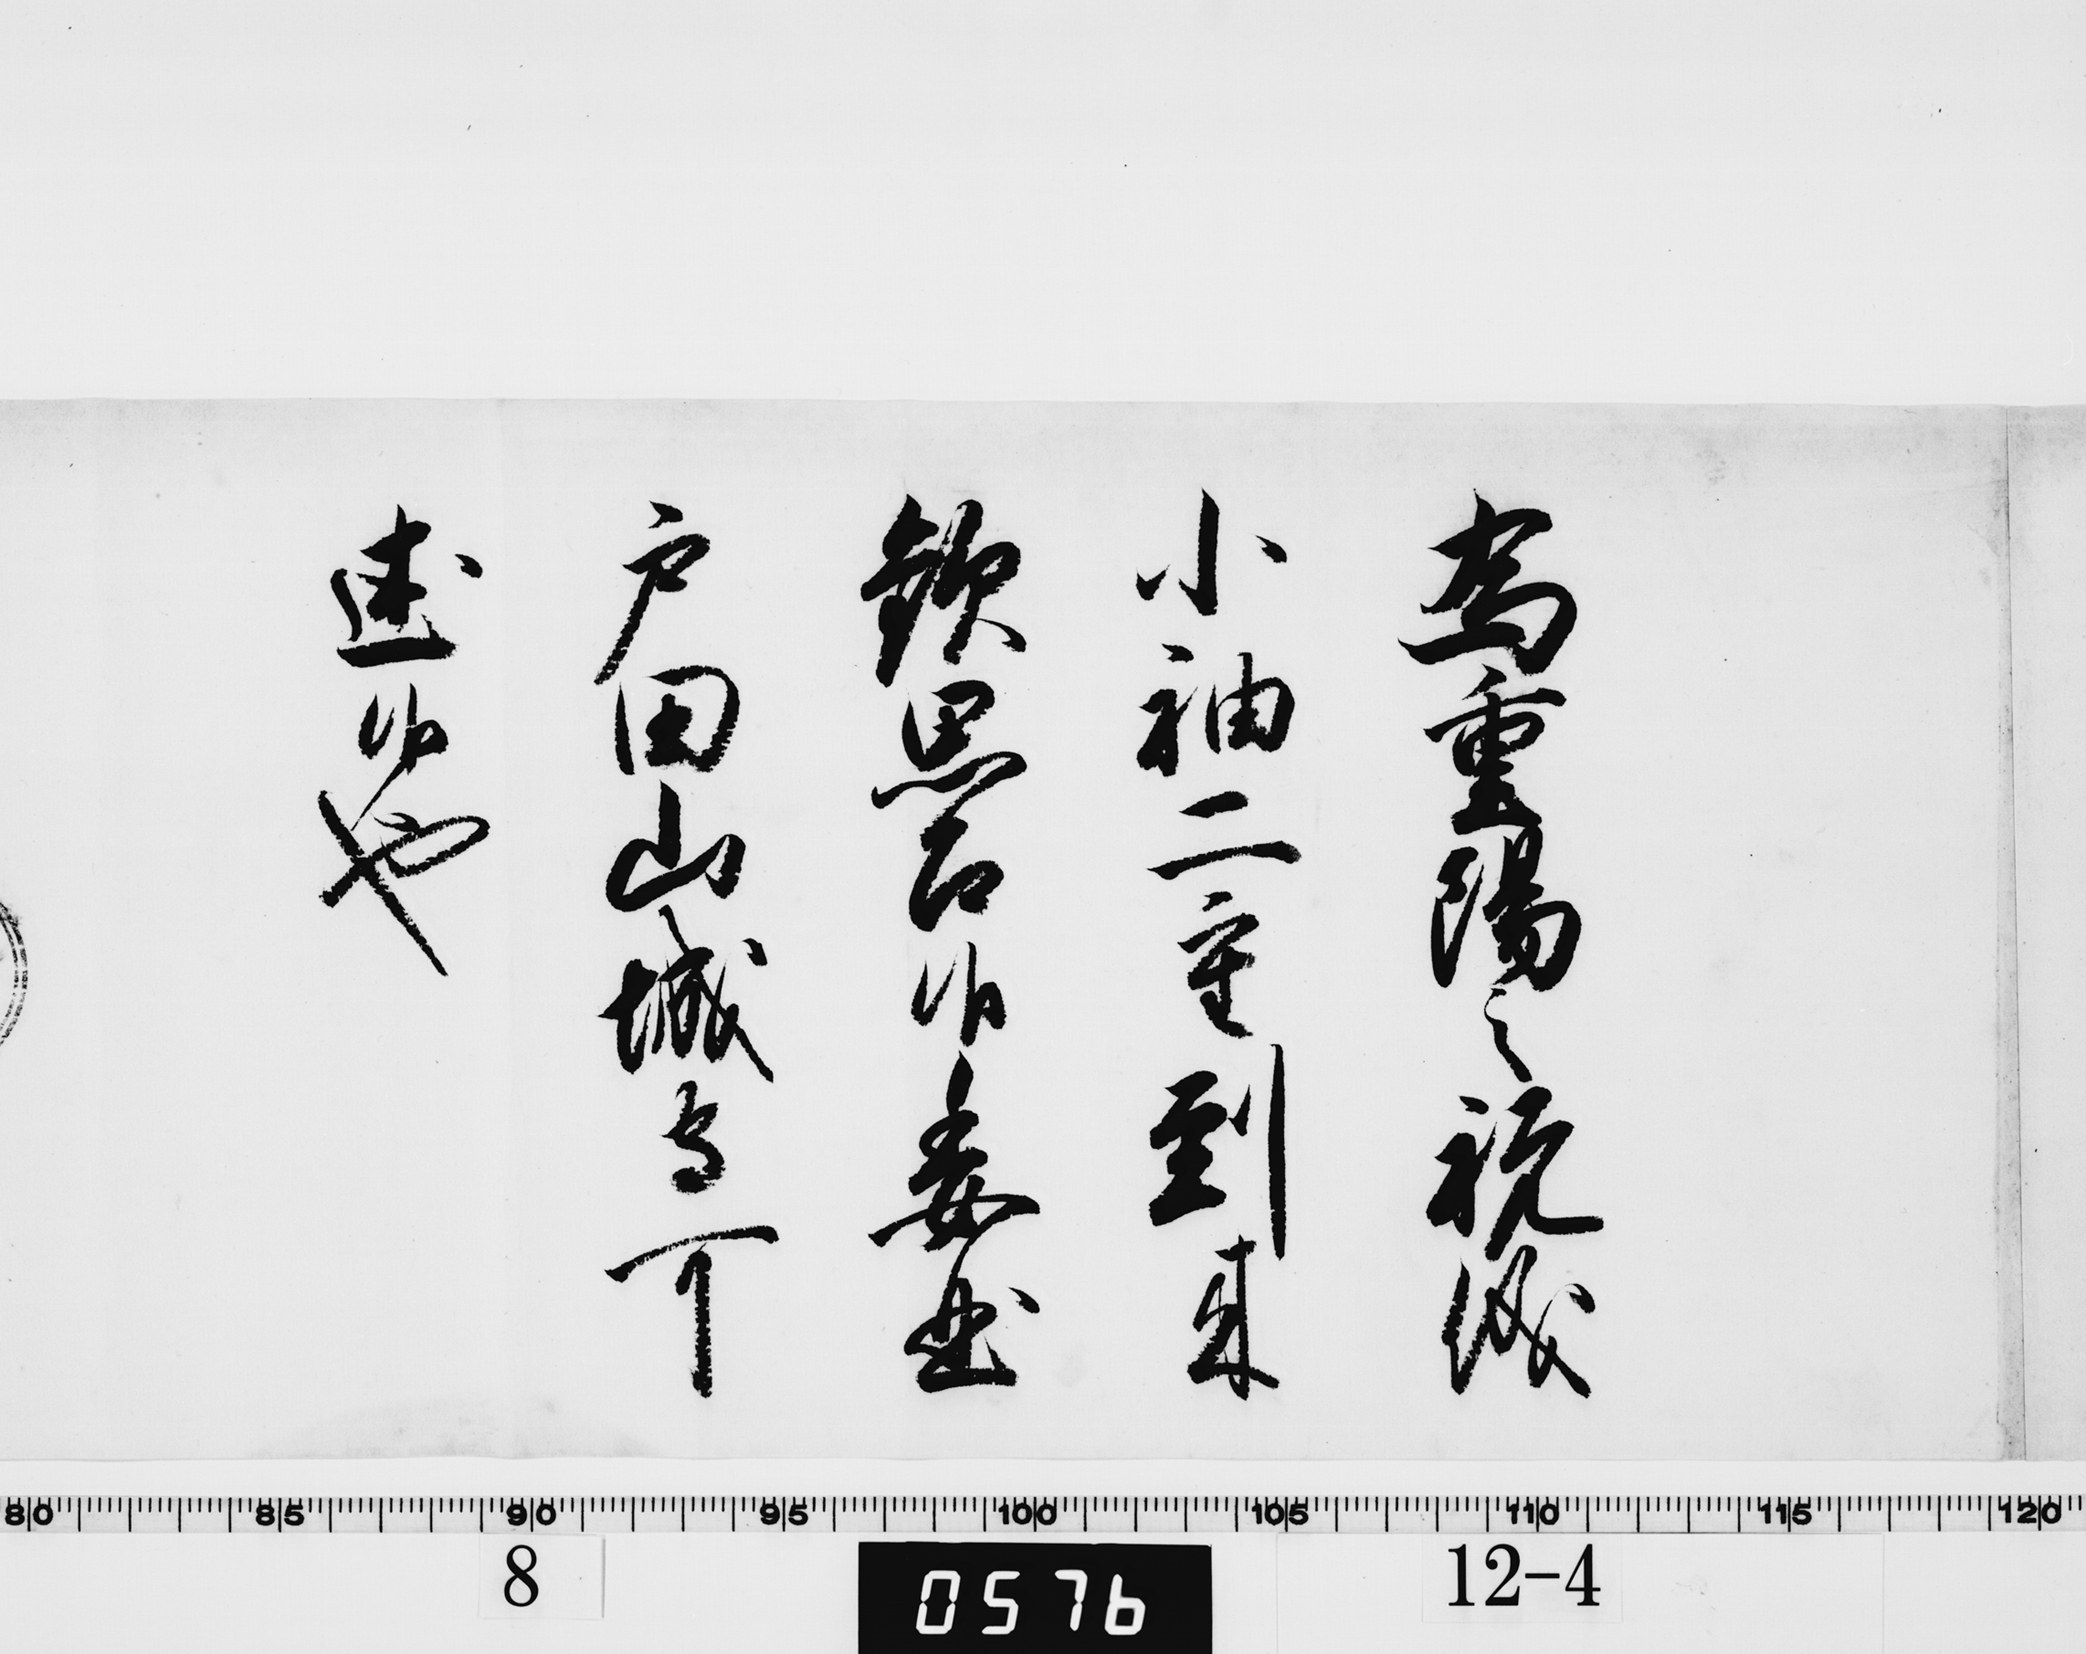 為重陽之祝儀
小袖二重到来
歓思召候委曲
戸田山城守可
述候也
80 85 90 95 100 105 110 115 120
8 0576 12-4